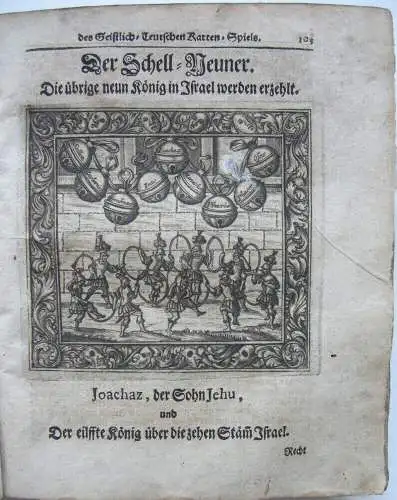 des Geistlich-Teutschen Karten-Spiels. 103
Der Schell-Neuner.
Die übrige neun König in Israel werden erzehlt.
Joachaz, der Sohn Jehu,
und
Der eilffte König über die zehen Stäm̃ Israel.
Recht